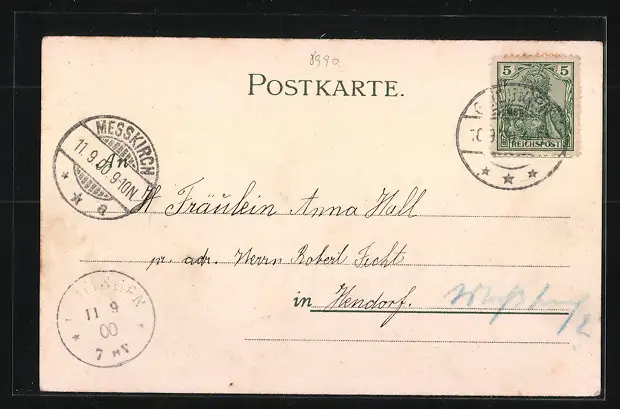 8990
POSTKARTE.
5 5
REICHSPOST
MESSKIRCH
11.9.00.9-10N.
* * a
An
Fräulein Anna Hall
pr. adr. Herrn Robert Fecht
in Hendorf.
11 9
00
7 NV